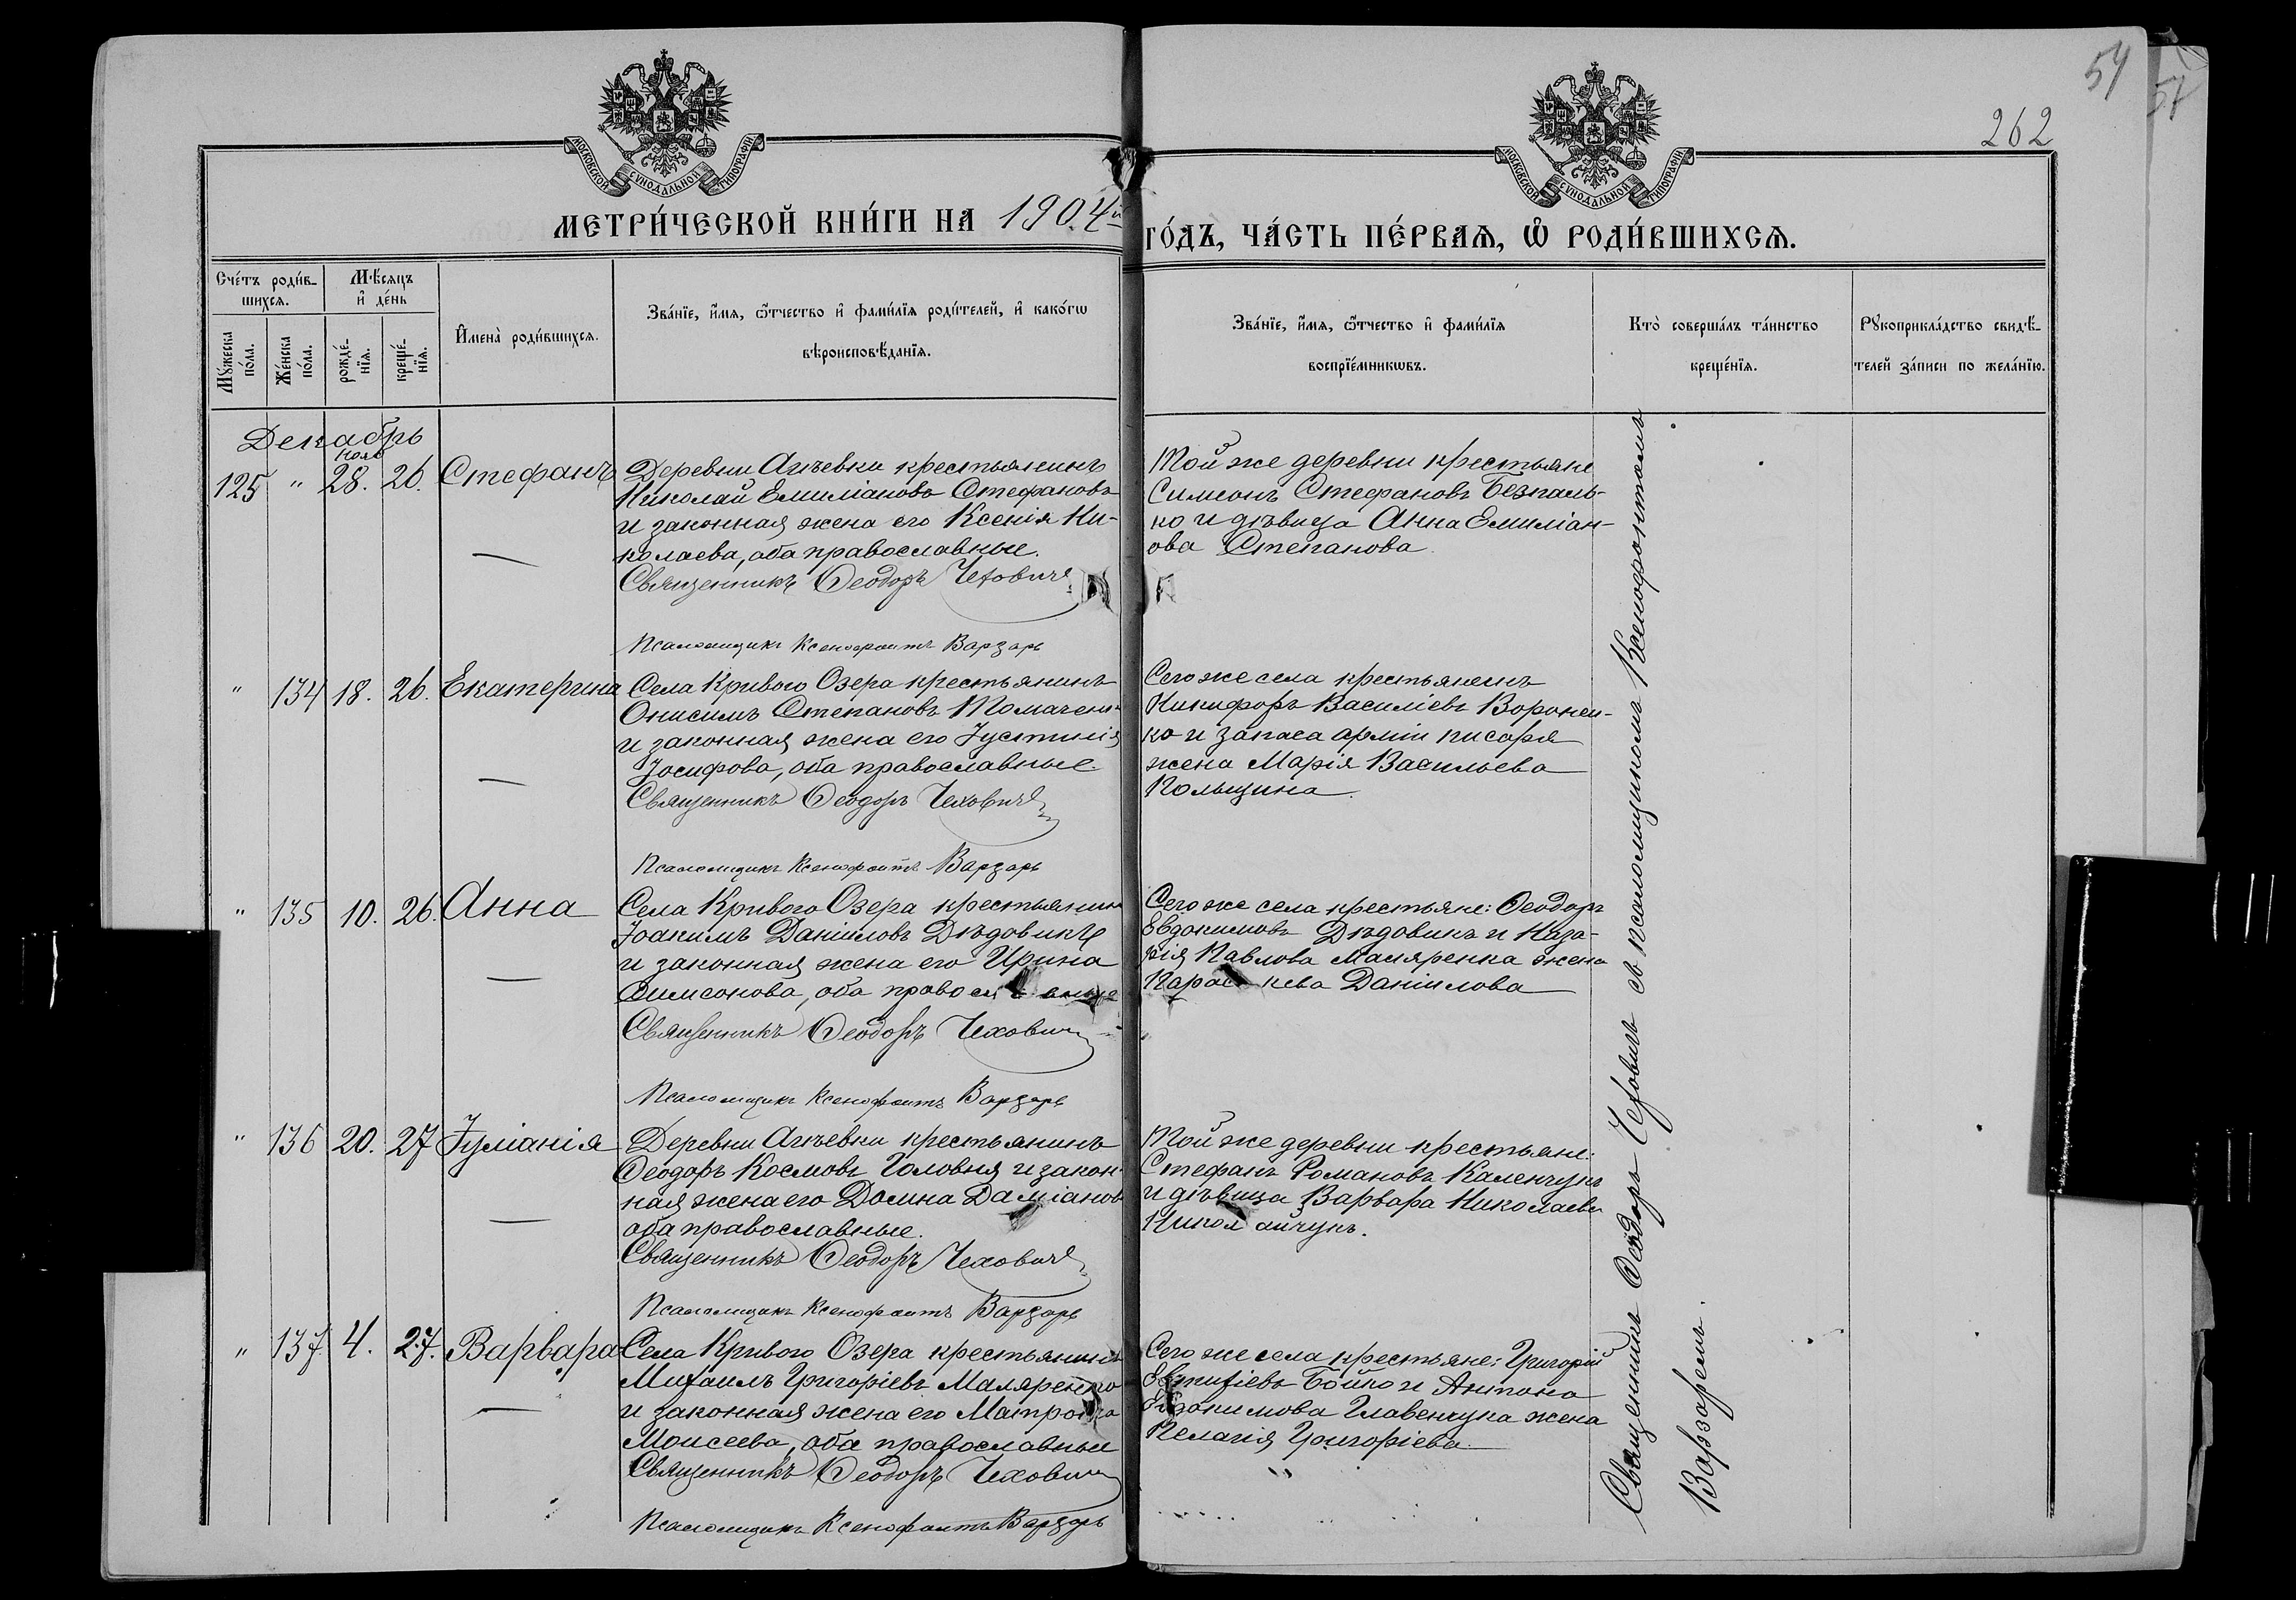 54
57
262
МОСКОВСКОЙ СѴНОДАЛЬНОЙ ТИПОГРАФІИ
МОСКОВСКОЙ СѴНОДАЛЬНОЙ ТИПОГРАФІИ
МЕТРИ́ЧЕСКОЙ КНИ́ГИ НА 1904й
ГО́ДЪ, ЧА́СТЬ ПЕ́РВАѦ, Ѡ РОДИ́ВШИХСѦ.
Сче́тъ роди́в-
шихсѧ.
Мѣ́сяцъ
и҆ де́нь
Мꙋ́жеска
по́ла.
Же́нска
по́ла.
рожде́-
нїѧ.
креще́-
нїѧ.
И҆мена̀ роди́вшихсѧ.
Зва́нїе, и҆́мѧ, ѻ҆́тчество и҆ фами́лїѧ роди́телей, и҆ како́гѡ
вѣроисповѣ́данїѧ.
Зва́нїе, и҆́мѧ, ѻ҆́тчество и҆ фами́лїѧ
воспрїе́мникѡвъ.
Кто̀ соверша́лъ та́инство
креще́нїѧ.
Рꙋкоприкла́дство свидѣ́-
телей за́писи по жела́нїю.
Декабрь
нояб
125 " 28. 26. Стефанъ
Деревни Ачѣевки крестьянинъ
Николай Емиліановъ Стефановъ
и законная жена его Ксенія Ни-
колаева, оба православные.
Священникъ Ѳеодоръ Чеховичъ
Псаломщикъ Ксенофонтъ Варзарь
Той же деревни крестьяне
Симеонъ Стефановъ Безпаль-
ко и дѣвица Анна Емиліан-
ова Степанова
" 134 18. 26. Екатерина
Села Кривого Озера крестьянинъ
Онисимъ Степановъ Томачен
и законная жена его Іустинія
Іосифова, оба православные.
Священникъ Ѳеодоръ Чеховичъ
Псаломщикъ Ксенофонтъ Варзарь
Сего же села крестьянинъ
Никифоръ Василіевъ Воронен-
ко и запаса арміи писаря
жена Марія Васильева
Кольцина.
" 135 10. 26. Анна
Села Кривого Озера крестьянин
Іоакимъ Даніиловъ Дѣдовикъ
и законная жена его Ирина
Симеонова, оба православные
Священникъ Ѳеодоръ Чехович
Псаломщикъ Ксенофонтъ Варзарь
Сего же села крестьяне: Ѳеодоръ
Евдокимовъ Дѣдовикъ и Наза-
рія Павлова Маляренка жена
Параскева Даніилова
" 136 20. 27 Іуліанія
Деревни Ачѣевки крестьянинъ
Ѳеодоръ Космовъ Головня и закон-
ная жена его Домна Даміанов
оба православные.
Священникъ Ѳеодоръ Чеховичъ
Псаломщикъ Ксенофонтъ Варзарь
Той же деревни крестьяне:
Стефанъ Романовъ Каленчукъ
и дѣвица Варвара Николаева
Николайчукъ.
" 137 4. 27. Варвара
Села Кривого Озера крестьянинъ
Михаилъ Григоріевъ Маляренко
и законная жена его Матрона
Моисеева, оба православные
Священникъ Ѳеодоръ Чехович
Псаломщикъ Ксенофонтъ Варзарь
Сего же села крестьяне: Григорій
Евтихіевъ Бойко и Антона
Евдокимова Главенчука жена
Пелагія Григоріева.
Священникъ Ѳеодоръ Чеховичъ съ псаломщикомъ Ксенофонтомъ
Варзаремъ.